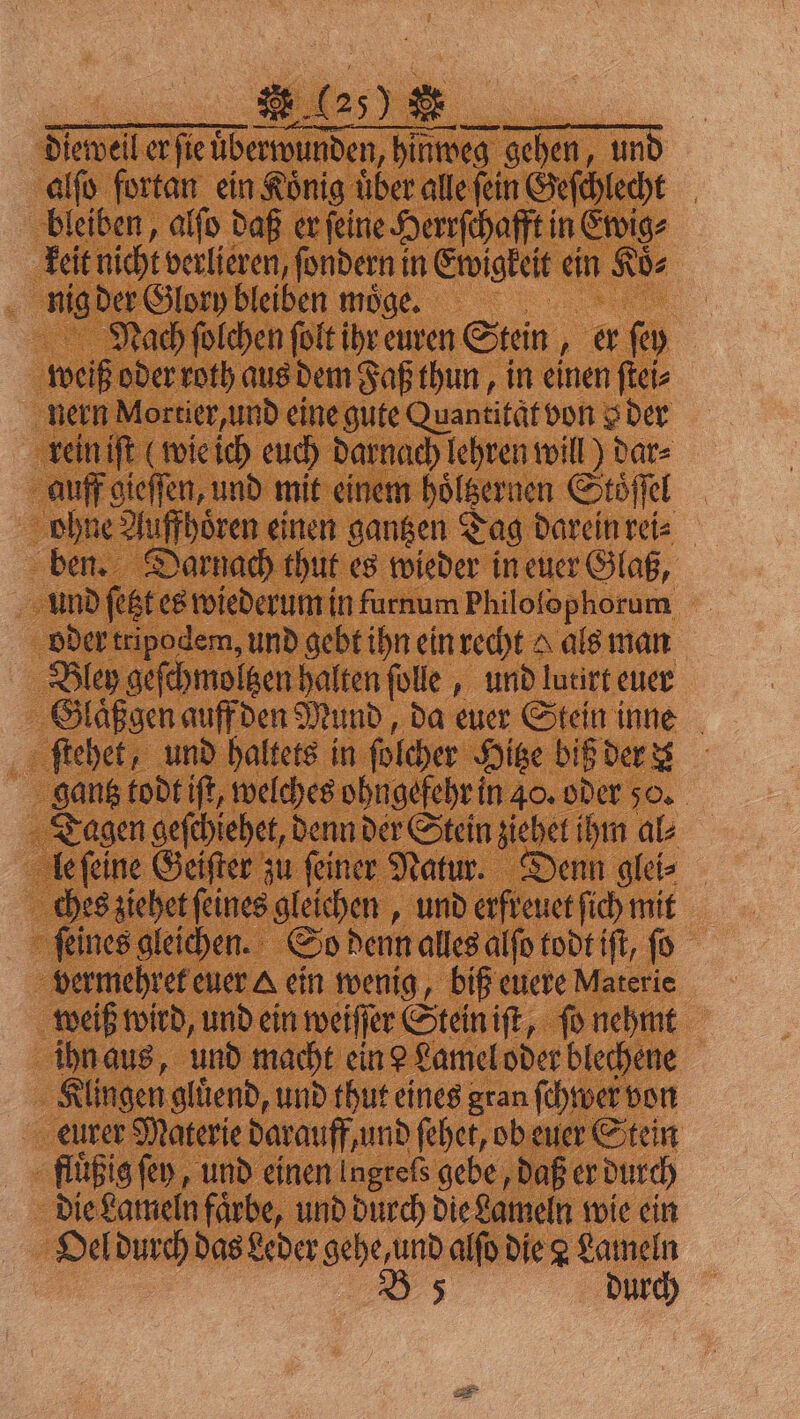 ❁ (25) ❁
dieweil er ſie uͤberwunden, hinweg gehen, und
alſo fortan ein Koͤnig uͤber alle ſein Geſchlecht
bleiben, alſo daß er ſeine Herrſchafft in Ewig⸗
keit nicht verlieren, ſondern in Ewigkeit ein Koͤ⸗
nig der Glory bleiben moͤge.
Nach ſolchen ſolt ihr euren Stein, er ſey
weiß oder roth aus dem Faß thun, in einen ſtei⸗
nern Mortier, und eine gute Quantitaͤt von ☿ der
rein iſt (wie ich euch darnach lehren will) dar⸗
auff gieſſen, und mit einem hoͤltzernen Stoͤſſel
ohne Auffhoͤren einen gantzen Tag darein rei⸗
ben. Darnach thut es wieder in euer Glaß,
und ſetzt es wiederum in furnum Philoſophorum
oder tripodem, und gebt ihn ein recht △ als man
Bley geſchmoltzen halten ſolle, und lutirt euer
Glaͤßgen auff den Mund, da euer Stein inne
ſtehet, und haltets in ſolcher Hitze biß der ☿
gantz todt iſt, welches ohngefehr in 40. oder 50.
Tagen geſchiehet, denn der Stein ziehet ihm al⸗
le ſeine Geiſter zu ſeiner Natur. Denn glei⸗
ches ziehet ſeines gleichen, und erfreuet ſich mit
ſeines gleichen. So denn alles alſo todt iſt, ſo
vermehret euer △ ein wenig, biß euere Materie
weiß wird, und ein weiſſer Stein iſt, ſo nehmt
ihn aus, und macht ein ♀ Lamel oder blechene
Klingen gluͤend, und thut eines gran ſchwer von
eurer Materie darauff, und ſehet, ob euer Stein
fluͤßig ſey, und einen Ingreſs gebe, daß er durch
die Lameln faͤrbe, und durch die Lameln wie ein
Oel durch das Leder gehe, und alſo die ♀ Lameln
B 5 durch